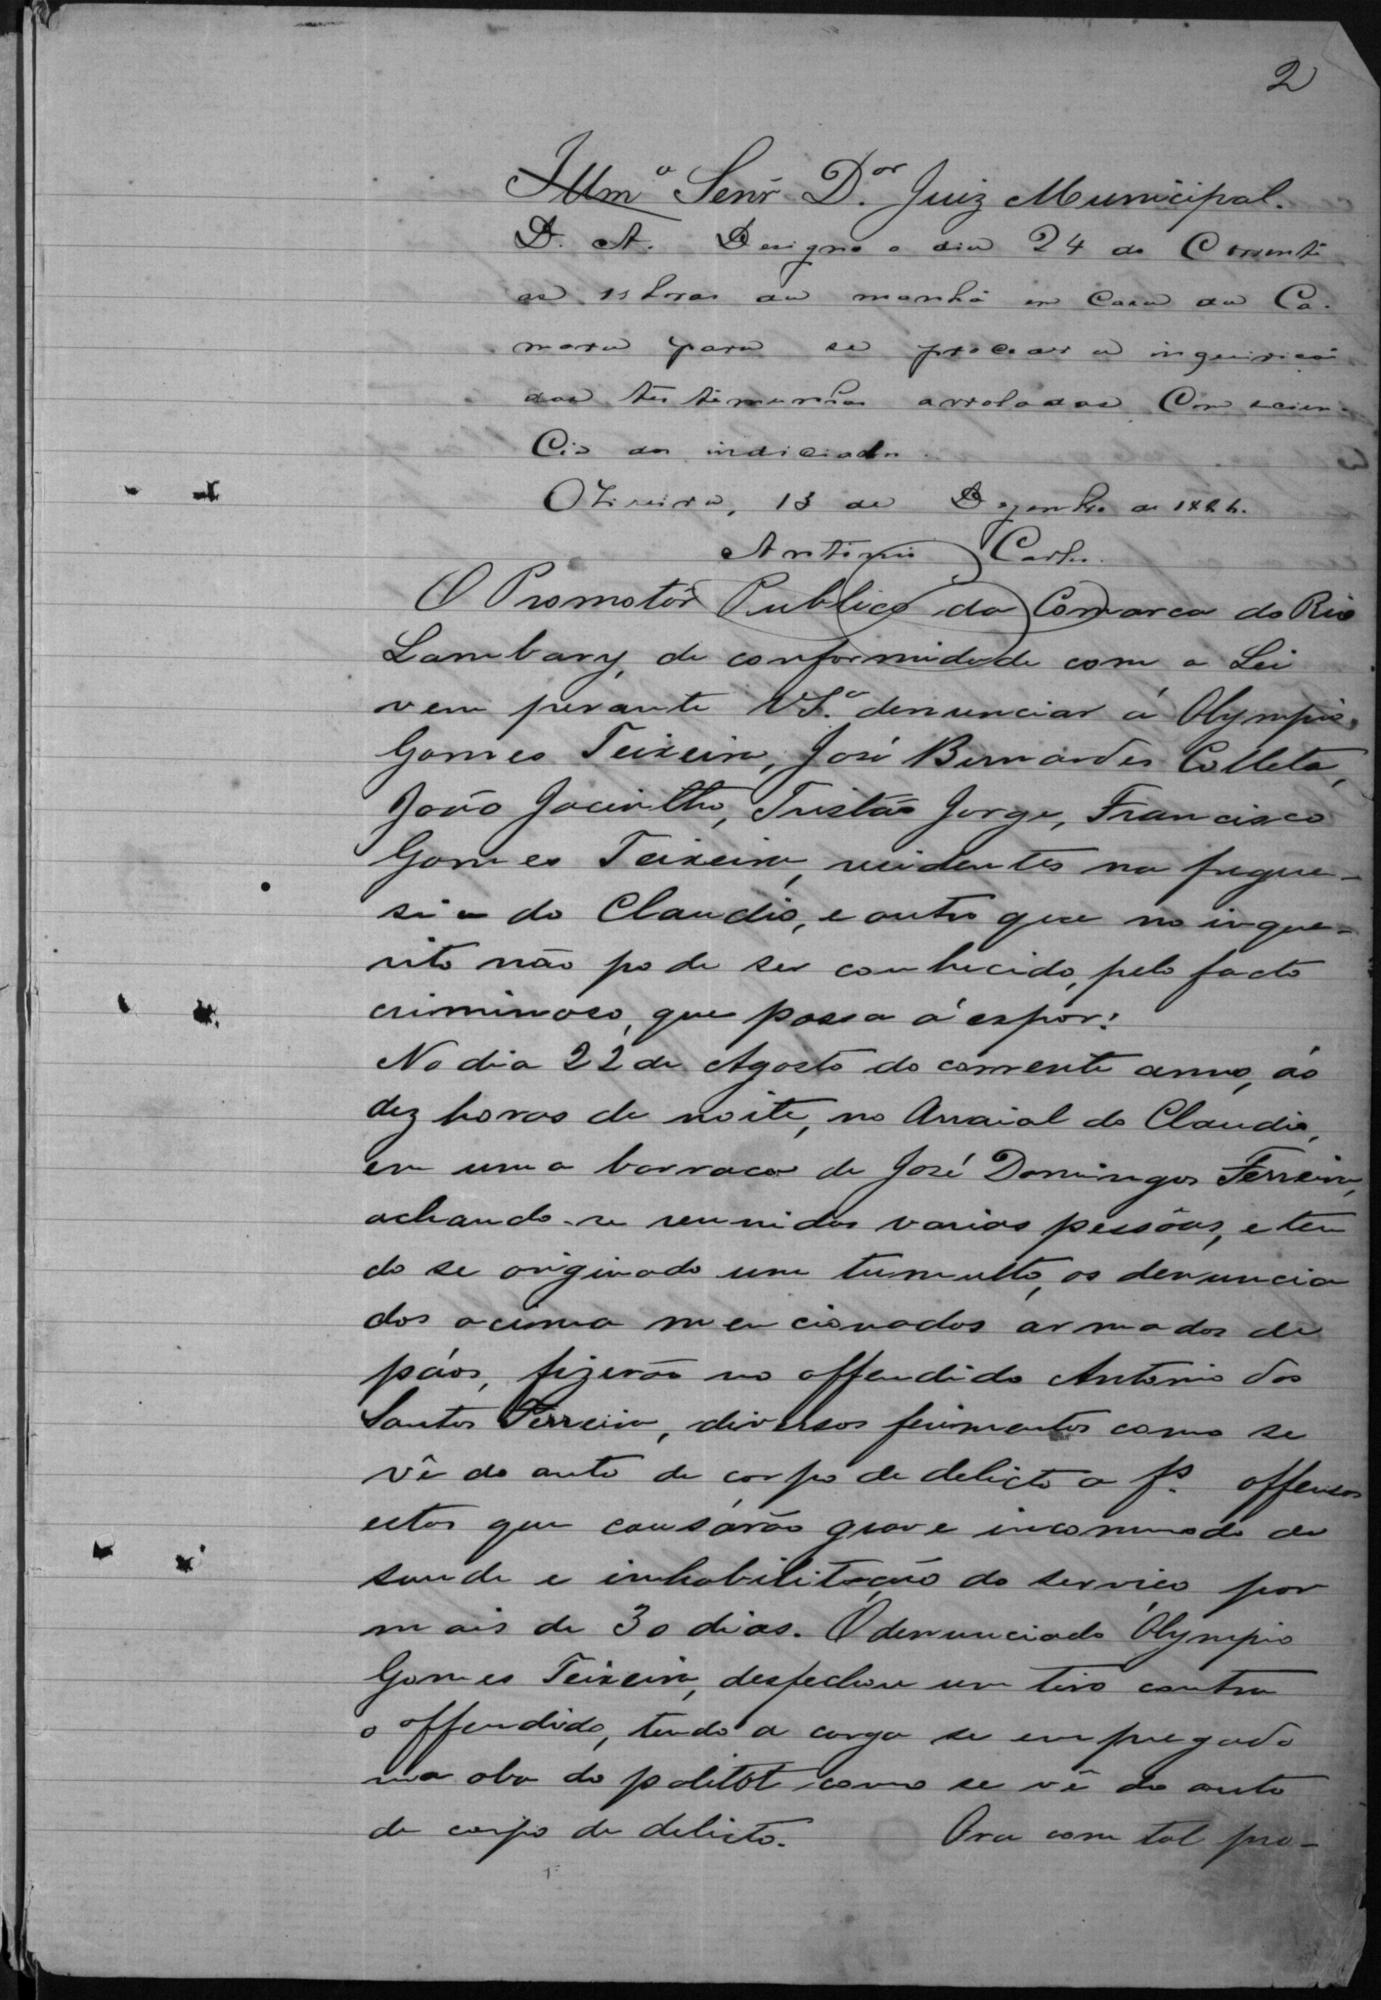 2
Illmº Senr. D.or Juiz Municipal.
D. A. Designo o dia 24 do Corrente
as 11 horas da manhã em Casa da Ca-
mara para se proceder a inquirição
das testemunhas arroladas Com scien-
Cia do indiciado.
Oliveira, 13 de Dezembro de 1886.
Antonio Carlos
O Promotôr Publico da Comarca do Rio
Lambary, de conformidade com a Lei
vem perante V.S.ª denunciar á Olympio
Gomes Teixeira, José Bernardes Colleta,
João Jacintho, Tristão Jorge, Francisco
Gomes Teixeira, residentes na fregue-
sia do Claudio, e outro que no inque-
rito não pode ser conhecido, pelo facto
criminoso, que passa á expôr:
No dia 22 de Agosto do corrente anno, ás
dez horas de noite, no Arraial do Claudio,
em uma barraca de José Domingos Ferreira,
achando-se reunidas varias pessôas, e ten
do se originado um tumulto, os denuncia
dos acima mencionados armados de
páos, fizerão no offendido Antonio dos
Santos Ferreira, diversos ferimentos como se
vê do auto de corpo de delicto a fs. offensas
estas que causárão grave incommodo de
saude e inhabilitação do serviço por
mais de 30 dias. O denunciado Olympio
Gomes Teixeira, desfechou um tiro contra
o offendido, tendo a carga se empregado
na aba do palitót como se vê do auto
de corpo de delicto. Ora com tal pro-